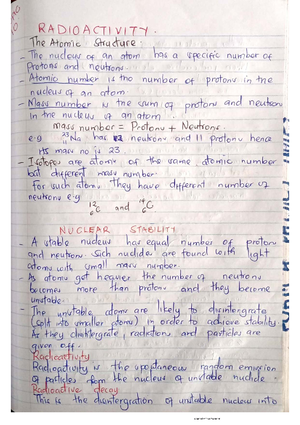 RADIOACTIVITY.
The Atomic Structure:
- The nucleus of an atom has a specific number of
Protons and neutrons.
- Atomic number is the number of protons in the
nucleus of an atom
- Mass number is the sum of protons and neutrons
in the nucleus of an atom.
mass number = Protons + Neutrons.
e.g 23 Na has 12 neutrons and 11 protons hence
its mass no is 23.
- Isotopes are atoms of the same atomic number
but different mass number
For such atoms, They have different number of
neutrons e.g
12 6 C and 14 6 C
NUCLEAR STABILITY
- A stable nucleus has equal number of protons
and neutrons. Such nuclides are found with light
atoms with small mass number.
- As atoms get heavier the number of neutrons
becomes more than protons and they become
unstable.
- The unstable atoms are likely to disintergrate
(split into smaller atoms) in order to achieve stability
As they disintergrate, radiations and particles are
given off.
Radioactivity
Radioactivity is the spontaneous random emission
of particles from the nucleus of unstable nuclide.
Radioactive decay
This is the disintergration of unstable nuclei into